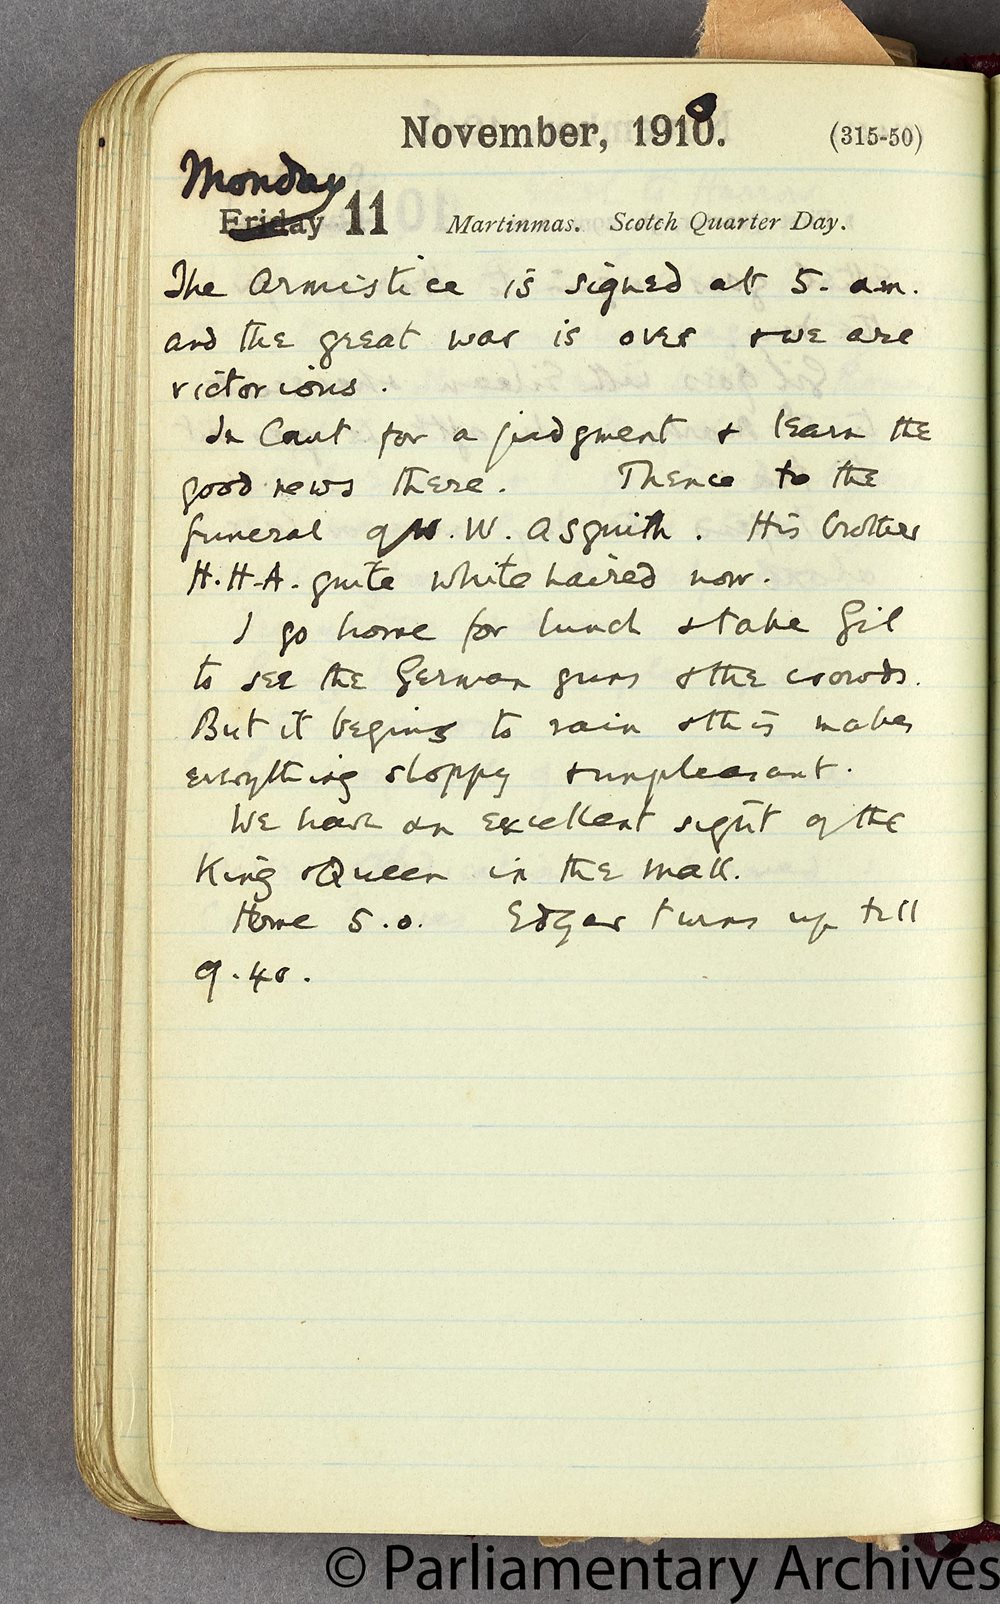 November, 1918.
(315-50)
Monday
Friday 11 Martinmas. Scotch Quarter Day.
The Armistice is signed at 5. a.m.
and the great war is over & we are
victorious.
In Court for a judgment & learn the
good news there. Thence to the
funeral of W. W. Asquith. His brother
H.H.A. quite white haired now.
I go home for lunch & take Gil
to see the German guns & the crowds.
But it begins to rain & this makes
everything sloppy & unpleasant.
We have an excellent sight of the
King & Queen in the Mall.
Home 5.0. Edgar turns up till
9.40.
© Parliamentary Archives